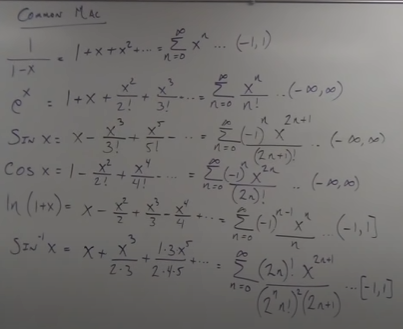 Common Mac
1/(1-x) = 1+x+x²+⋯ = ∑_{n=0}^{∞} xⁿ ⋯ (-1,1)
eˣ = 1+x+x²/2!+x³/3!⋯ = ∑_{n=0}^{∞} xⁿ/n! ⋯ (-∞,∞)
Sin x = x - x³/3! + x⁵/5! - ⋯ = ∑_{n=0}^{∞} (-1)ⁿ x²ⁿ⁺¹/(2n+1)! ⋯ (-∞,∞)
Cos x = 1 - x²/2! + x⁴/4! - ⋯ = ∑_{n=0}^{∞} (-1)ⁿ x²ⁿ/(2n)! ⋯ (-∞,∞)
ln(1+x) = x - x²/2 + x³/3 - x⁴/4 + ⋯ = ∑_{n=0}^{∞} (-1)ⁿ⁻¹ xⁿ/n ⋯ (-1,1]
Sin⁻¹ x = x + x³/(2·3) + 1·3x⁵/(2·4·5) + ⋯ = ∑_{n=0}^{∞} (2n)! x²ⁿ⁺¹/((2ⁿ n!)²(2n+1)) ⋯ [-1,1]